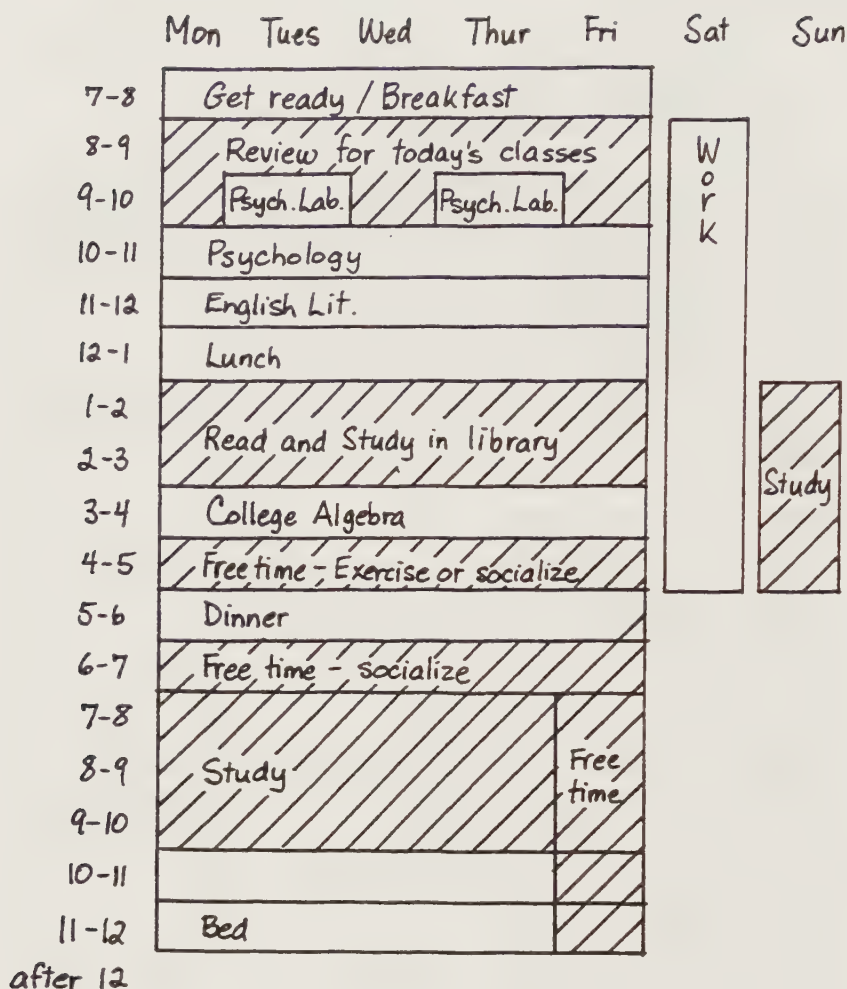 Mon Tues Wed Thur Fri Sat Sun
7-8 Get ready / Breakfast
8-9 Review for today's classes
Work
9-10 Psych. Lab. Psych. Lab.
10-11 Psychology
11-12 English Lit.
12-1 Lunch
1-2
Read and Study in library
2-3
Study
3-4 College Algebra
4-5 Free time - Exercise or socialize
5-6 Dinner
6-7 Free time - socialize
7-8
8-9 Study Free
time
9-10
10-11
11-12 Bed
after 12